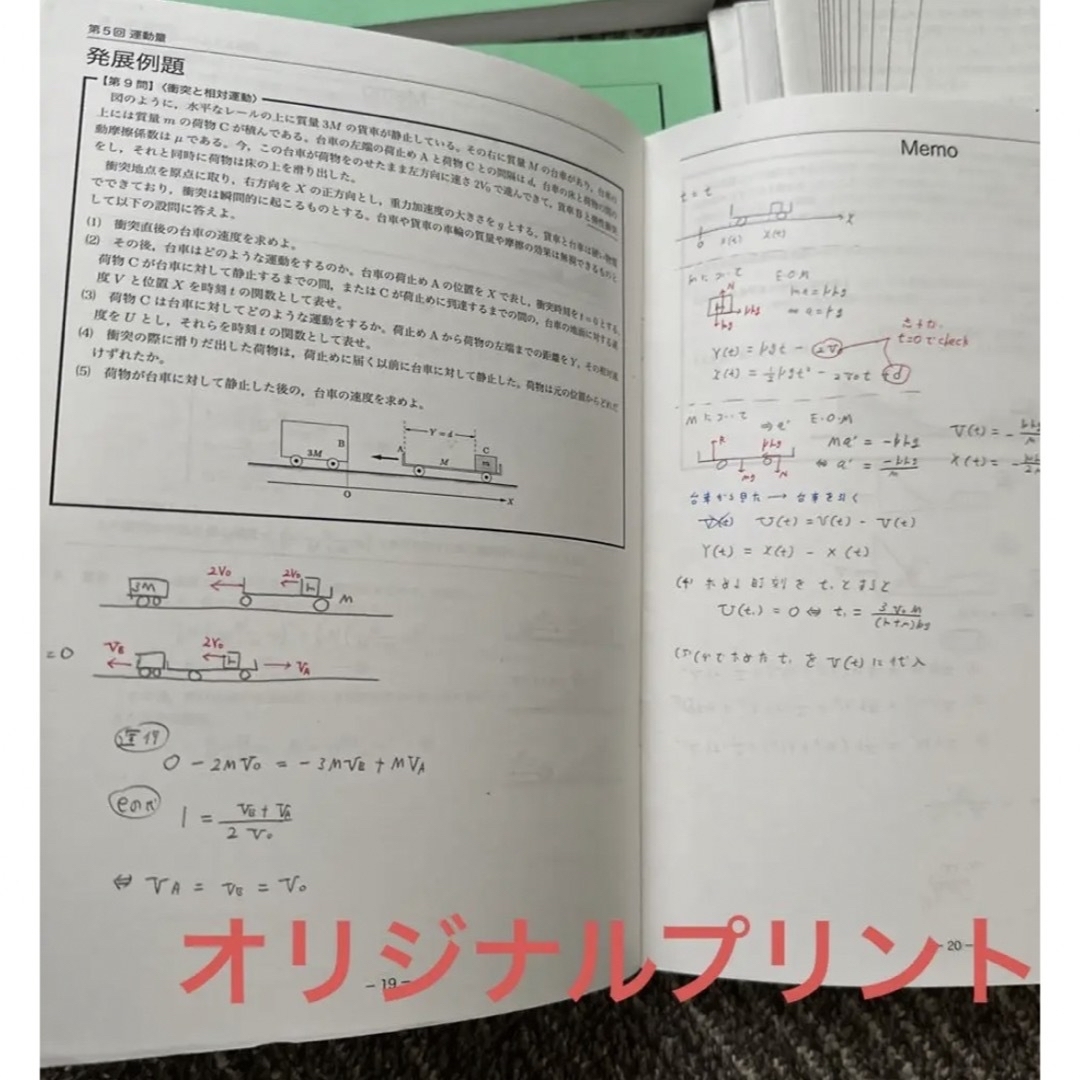 第5回 運動量
発展例題
【第9問】〈衝突と相対運動〉
図のように,水平なレールの上に質量3Mの貨車が静止している。その右に質量Mの台車があり,台車の
上には質量mの荷物Cが積んである。台車の左端の荷止めAと荷物Cとの間隔はd,台車の床と荷物の間の
動摩擦係数はμである。今,この台車が荷物をのせたまま左方向に速さ2V₀で進んできて,貨車Bと弾性衝突
をし,それと同時に荷物は床の上を滑り出した。
衝突地点を原点に取り,右方向をXの正方向とし,重力加速度の大きさをgとする。貨車と台車は硬い物質
でできており,衝突は瞬間的に起こるものとする。台車や貨車の車輪の質量や摩擦の効果は無視できるものと
して以下の設問に答えよ。
(1) 衝突直後の台車の速度を求めよ。
(2) その後,台車はどのような運動をするのか。台車の荷止めAの位置をXで表し,衝突時刻をt=0とする。
荷物Cが台車に対して静止するまでの間,またはCが荷止めに到達するまでの間の,台車の地面に対する速
度Vと位置Xを時刻tの関数として表せ。
(3) 荷物Cは台車に対してどのような運動をするか。荷止めAから荷物の左端までの距離をY,その相対速
度をUとし,それらを時刻tの関数として表せ。
(4) 衝突の際に滑りだした荷物は,荷止めに届く以前に台車に対して静止した。荷物は元の位置からどれだ
けずれたか。
(5) 荷物が台車に対して静止した後の,台車の速度を求めよ。
3M
B
A
Y=d
M
C
m
O
X
3M
2V₀
2V₀
m
M
=0
V_B
2V₀
m
V_A
運保
0 - 2MV₀ = -3MV_B + MV_A
eの式
1 = (V_B + V_A) / 2V₀
⇔ V_A = V_B = V₀
- 19 -
Memo
t = t
0
x(t)
X(t)
X
mについて E.O.M
N
μmg
mg
ma = μmg
⇔ a = μg
t=0でcheck
V(t) = μgt - 2V₀
X(t) = ½μgt² - 2V₀t + d
Mについて E.O.M
R
μmg
Mg
N
Ma' = -μmg
⇔ a' = -μmg / M
台車から見た → 台車を引く
U(t) = V(t) - v(t)
Y(t) = X(t) - x(t)
(4) 求める時刻をt₁とすると
U(t₁) = 0 ⇔ t₁ = 3V₀M / (m+M)μg
(5) (4)で求めたt₁をv(t)に代入
- 20 -
オリジナルプリント